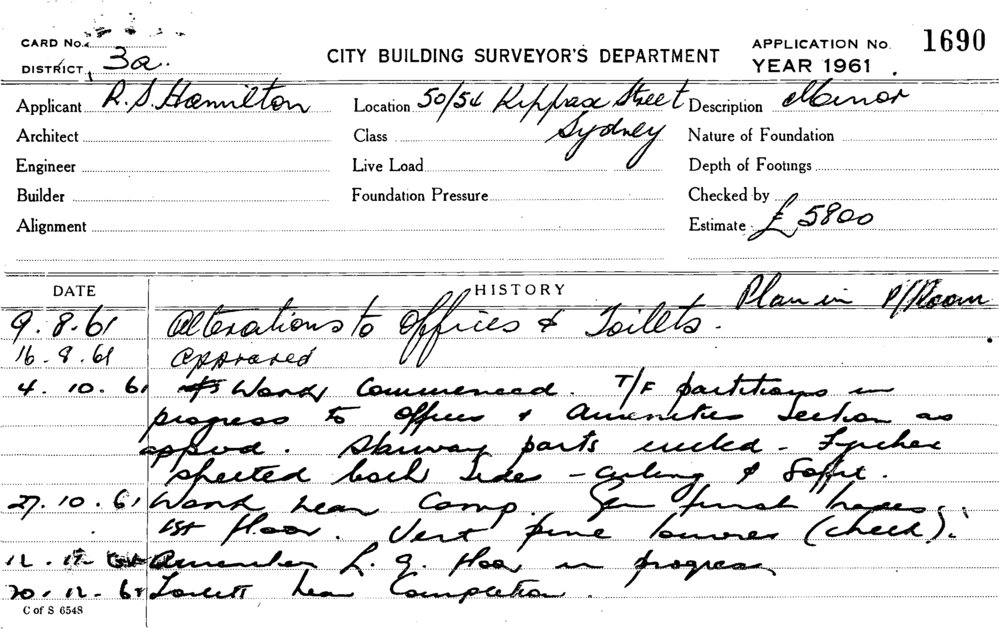 CARD No.
DISTRICT 3a.
CITY BUILDING SURVEYOR'S DEPARTMENT
APPLICATION No. 1690
YEAR 1961.
Applicant R. S. Hamilton
Location 50/54 Rippax Street
Sydney
Description Minor
Architect
Class
Nature of Foundation
Engineer
Live Load
Depth of Footings
Builder
Foundation Pressure
Checked by
Alignment
Estimate £ 5800
DATE
HISTORY
Plan in P/Room
9.8.61 Alterations to Offices & Toilets.
16.8.61 Approved
4.10.61 Work Commenced. T/F partitions in
progress to offices & Amenities Section as
appvd. Stairway parts
sheeted both sides - ceiling & Soffit.
27.10.61 Work near Comp. Gen finish
1st Floor. Vert pine louvres (check).
12. Amenities L. G. floor in progress
20.12.61 near Completion.
C of S 6548